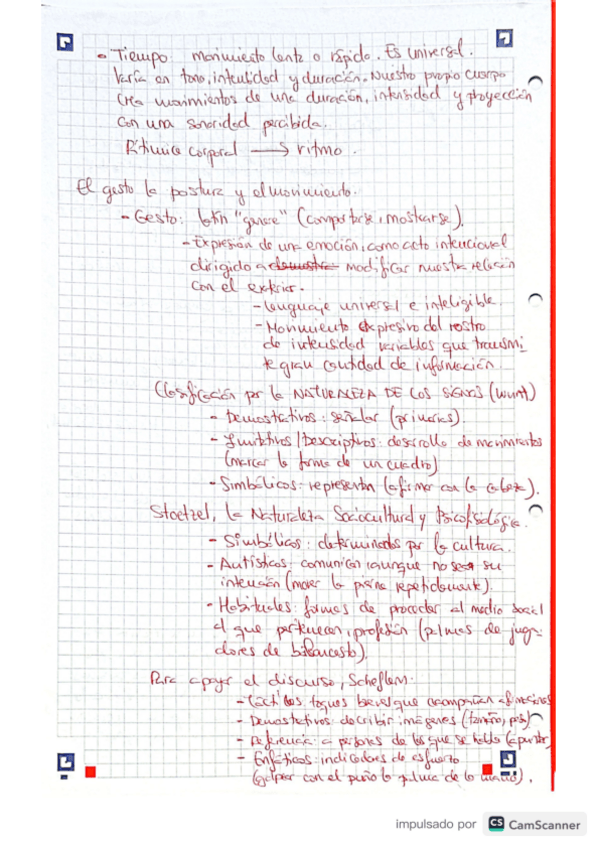 • Tiempo: movimiento lento o rápido. Es universal.
Varía en tono, intensidad y duración. Nuestro propio cuerpo
crea movimientos de una duración, intensidad y proyección
con una sonoridad percibida.
Rítmica corporal → ritmo.
El gesto la postura y el movimiento.
- Gesto: latín "genere" (comportarse, mostrarse).
- Expresión de una emoción, como acto intencional
dirigido a demostrar modificar nuestra relación
con el exterior.
- Lenguaje universal e inteligible.
- Movimiento expresivo del rostro
de intensidad variables que transmi
te gran cantidad de información.
Clasificación por la NATURALEZA DE LOS SIGNOS (Wunt)
- Demostrativos: señalar (primarios).
- Imitativos/Descriptivos: desarrollo de movimientos
(marcar la forma de un cuadro)
- Simbólicos: representan (afirmar con la cabeza).
Stoetzel, la Naturaleza Sociocultural y Psicofisiológica.
- Simbólicos: determinados por la cultura.
- Autísticos: comunican aunque no sea su
intención (mover la pierna repetidamente).
- Habituales: formas de proceder al medio social
al que pertenecen, profesión (palmas de juga-
dores de baloncesto).
Para apoyar el discurso, Scheflem.
- Táctiles: toques breves que acompañan afirmaciones
- Demostrativos: describir imágenes (tamaño, pos)
- Referencia: a personas de las que se habla (apuntar)
- Enfáticos: indicadores de esfuerzo
(golpear con el puño la palma de la mano).
impulsado por CS CamScanner